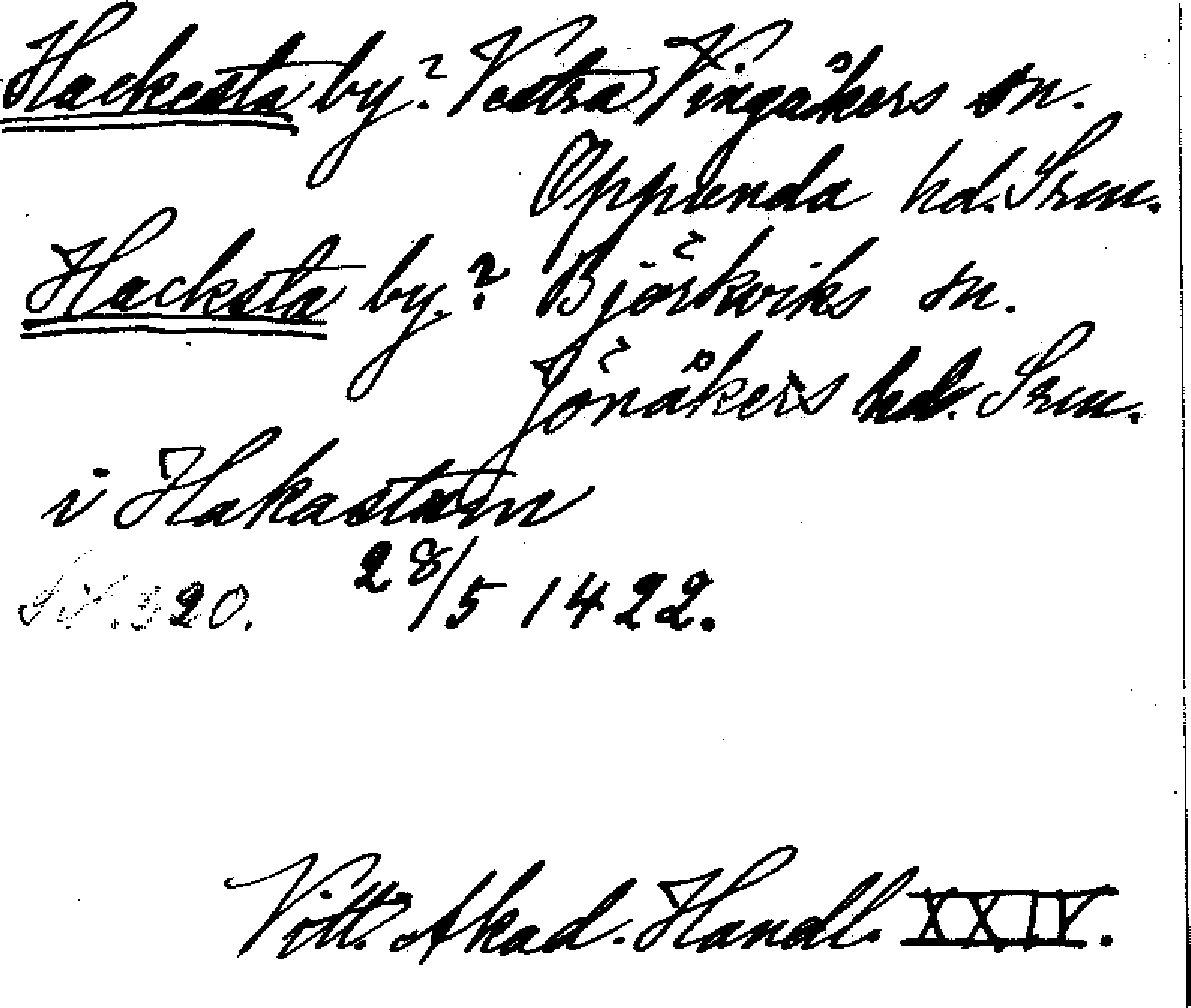 Hackesta by? Vestra Vingåkers sn.
Oppunda hd. Srm.
Hacksta by.? Björkviks sn.
Jönåkers hd. Srm.
i Hakastum
Sid. 320. 28/5 1422.
Vitt. Akad. Handl. XXIV.